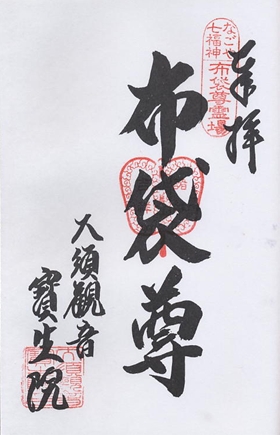 奉拝
なごや
七福神
布袋尊霊場
布袋尊
大須観音
寳生院